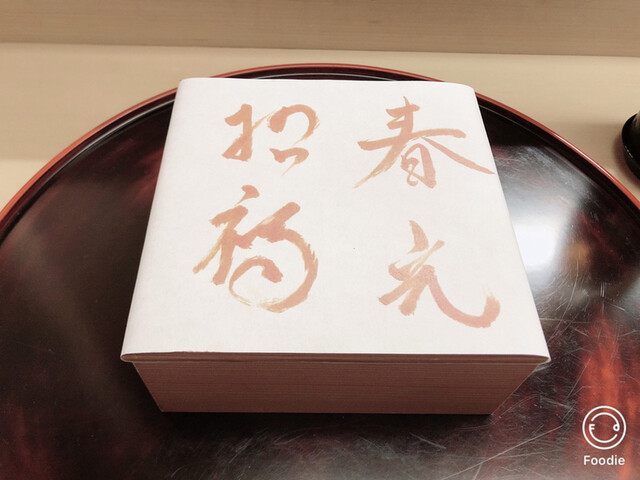 春光
招福
Foodie